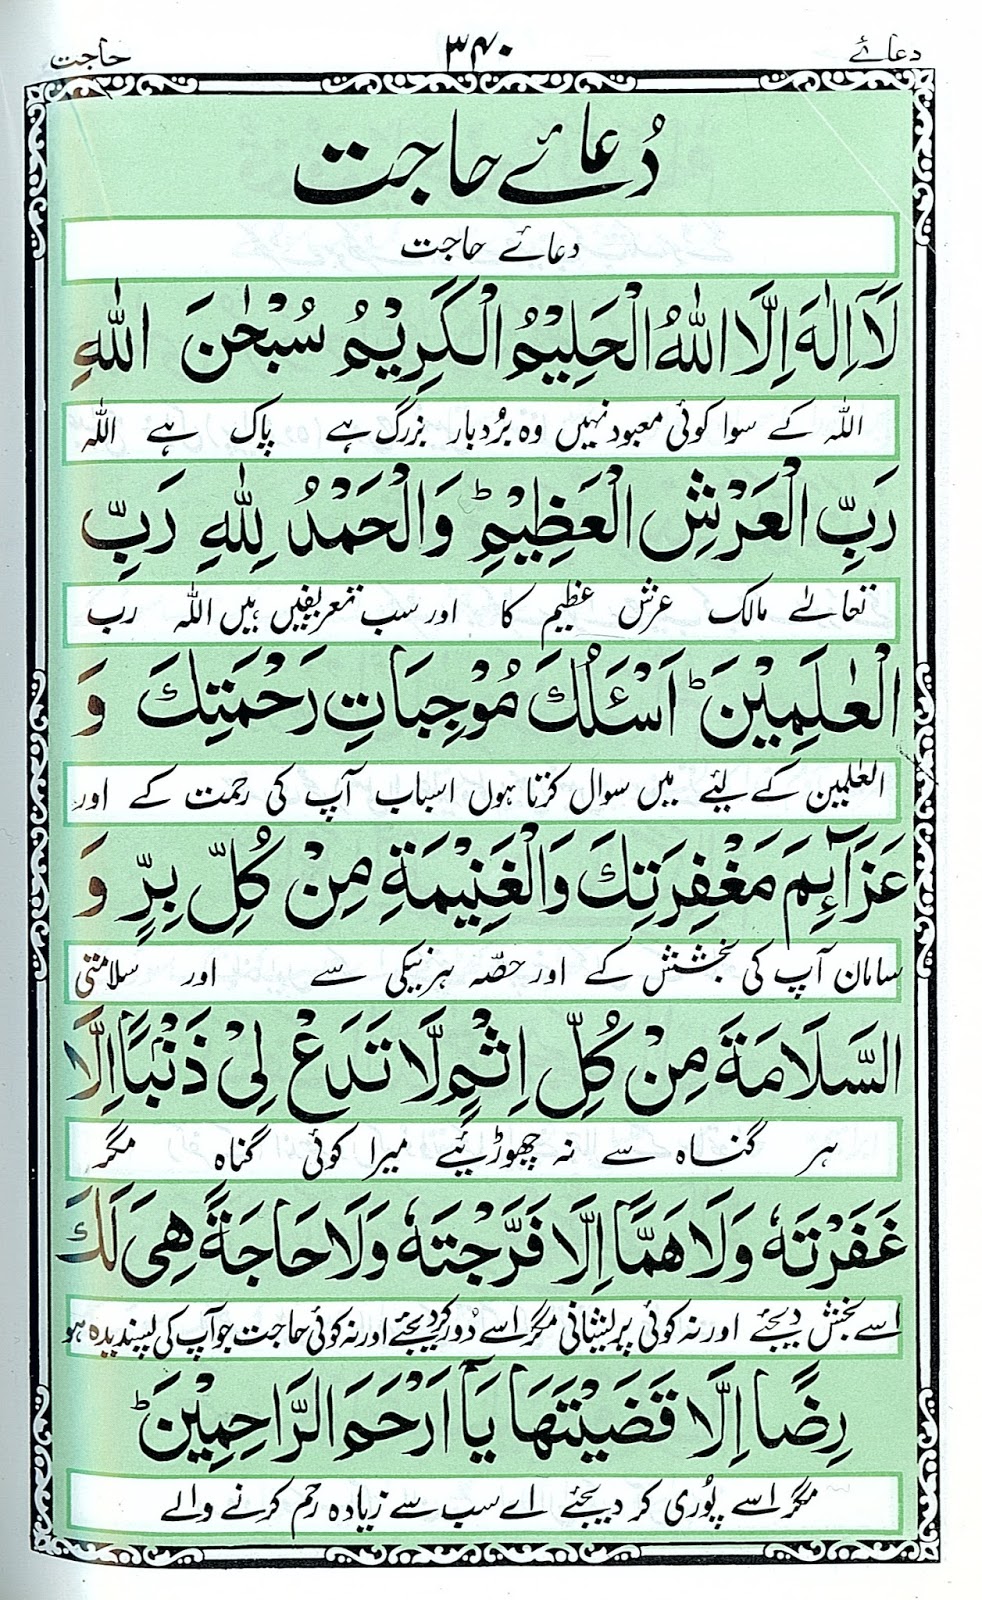 دعائے ۳۴۰ حاجت
دُعائے حاجت
دعائے حاجت
لَآ اِلٰهَ اِلَّا اللّٰهُ الْحَلِيْمُ الْكَرِيْمُ سُبْحٰنَ اللّٰهِ
اللہ کے سوا کوئی معبود نہیں وہ بُردبار بزرگ ہے پاک ہے اللہ
رَبِّ الْعَرْشِ الْعَظِيْمِ ؕ وَالْحَمْدُ لِلّٰهِ رَبِّ
تعالےٰ مالک عرش عظیم کا اور سب تعریفیں ہیں اللہ رب
الْعٰلَمِيْنَ ؕ اَسْئَلُكَ مُوْجِبَاتِ رَحْمَتِكَ وَ
العٰلمین کے لیئے میں سوال کرتا ہوں اسباب آپ کی رحمت کے اور
عَزَآئِمَ مَغْفِرَتِكَ وَالْغَنِيْمَةَ مِنْ كُلِّ بِرٍّ وَ
سامان آپ کی بخشش کے اور حصّہ ہر نیکی سے اور سلامتی
السَّلَامَةَ مِنْ كُلِّ اِثْمٍ لَّا تَدَعْ لِىْ ذَنْۢبًا اِلَّا
ہر گناہ سے نہ چھوڑیئے میرا کوئی گناہ مگر
غَفَرْتَهٗ وَلَا هَمًّا اِلَّا فَرَّجْتَهٗ وَلَا حَاجَةً هِىَ لَكَ
اسے بخش دیجئے اور نہ کوئی پریشانی مگر اسے دُور کردیجئے اور نہ کوئی حاجت جو آپ کی پسندیدہ ہو
رِضًا اِلَّا قَضَيْتَهَا يَآ اَرْحَمَ الرَّاحِمِيْنَ ؕ
مگر اسے پُوری کر دیجئے اے سب سے زیادہ رحم کرنے والے